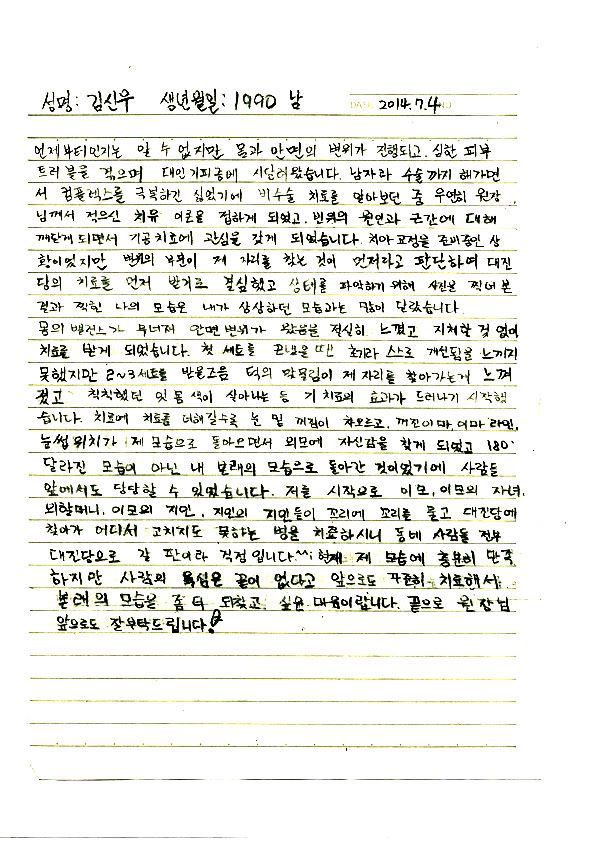 성명: 김신우 생년월일: 1990 남 DATE 2014.7.4
언제부터인지는 알 수 없지만 몸과 안면의 변위가 진행되고, 심한 피부
트러블을 겪으며 대인기피증에 시달려왔습니다. 남자라 수술까지 해가면
서 컴플렉스를 극복하긴 싫었기에 비수술 치료를 알아보던 중 우연히 원장
님께서 적으신 치유 이론을 접하게 되었고, 변위의 원인과 근간에 대해
깨닫게 되면서 기공치료에 관심을 갖게 되었습니다. 치아 교정을 준비중인 상
황이었지만 변위의 부분이 제 자리를 찾는 것이 먼저라고 판단하여 대진
당의 치료를 먼저 받기로 결심했고 상태를 파악하기 위해 사진을 찍어 본
결과 찍힌 나의 모습은 내가 상상하던 모습과는 많이 달랐습니다.
몸의 밸런스가 무너져 안면변위가 왔음을 절실히 느꼈고 지체할 것 없이
치료를 받게 되었습니다. 첫 세트를 끝냈을 땐 호기라 스스로 개선됨을 느끼지
못했지만 2~3세트를 받을즈음 턱의 맞물림이 제자리를 찾아가는게 느껴
졌고 칙칙했던 잇몸 색이 살아나는 등 기 치료의 효과가 드러나기 시작했
습니다. 치료에 치료를 더해갈수록 눈 밑 꺼짐이 차오르고, 꺼진이마, 이마 라인,
눈썹 위치가 제 모습으로 돌아오면서 외모에 자신감을 찾게 되었고 180°
달라진 모습이 아닌 내 본래의 모습으로 돌아간 것이었기에 사람들
앞에서도 당당할 수 있었습니다. 저를 시작으로 이모, 이모의 자녀,
외할머니, 이모의 지인, 지인의 지인들이 꼬리에 꼬리를 물고 대진당에
찾아가 어디서 고치지도 못하는 병을 치료하시니 동네 사람들 전부
대진당으로 갈 판이라 걱정입니다^^; 현재 제 모습에 충분히 만족
하지만 사람의 욕심은 끝이 없다고 앞으로도 꾸준히 치료해서
본래의 모습을 좀 더 되찾고 싶은 마음이랍니다. 끝으로 원장님
앞으로도 잘부탁드립니다!